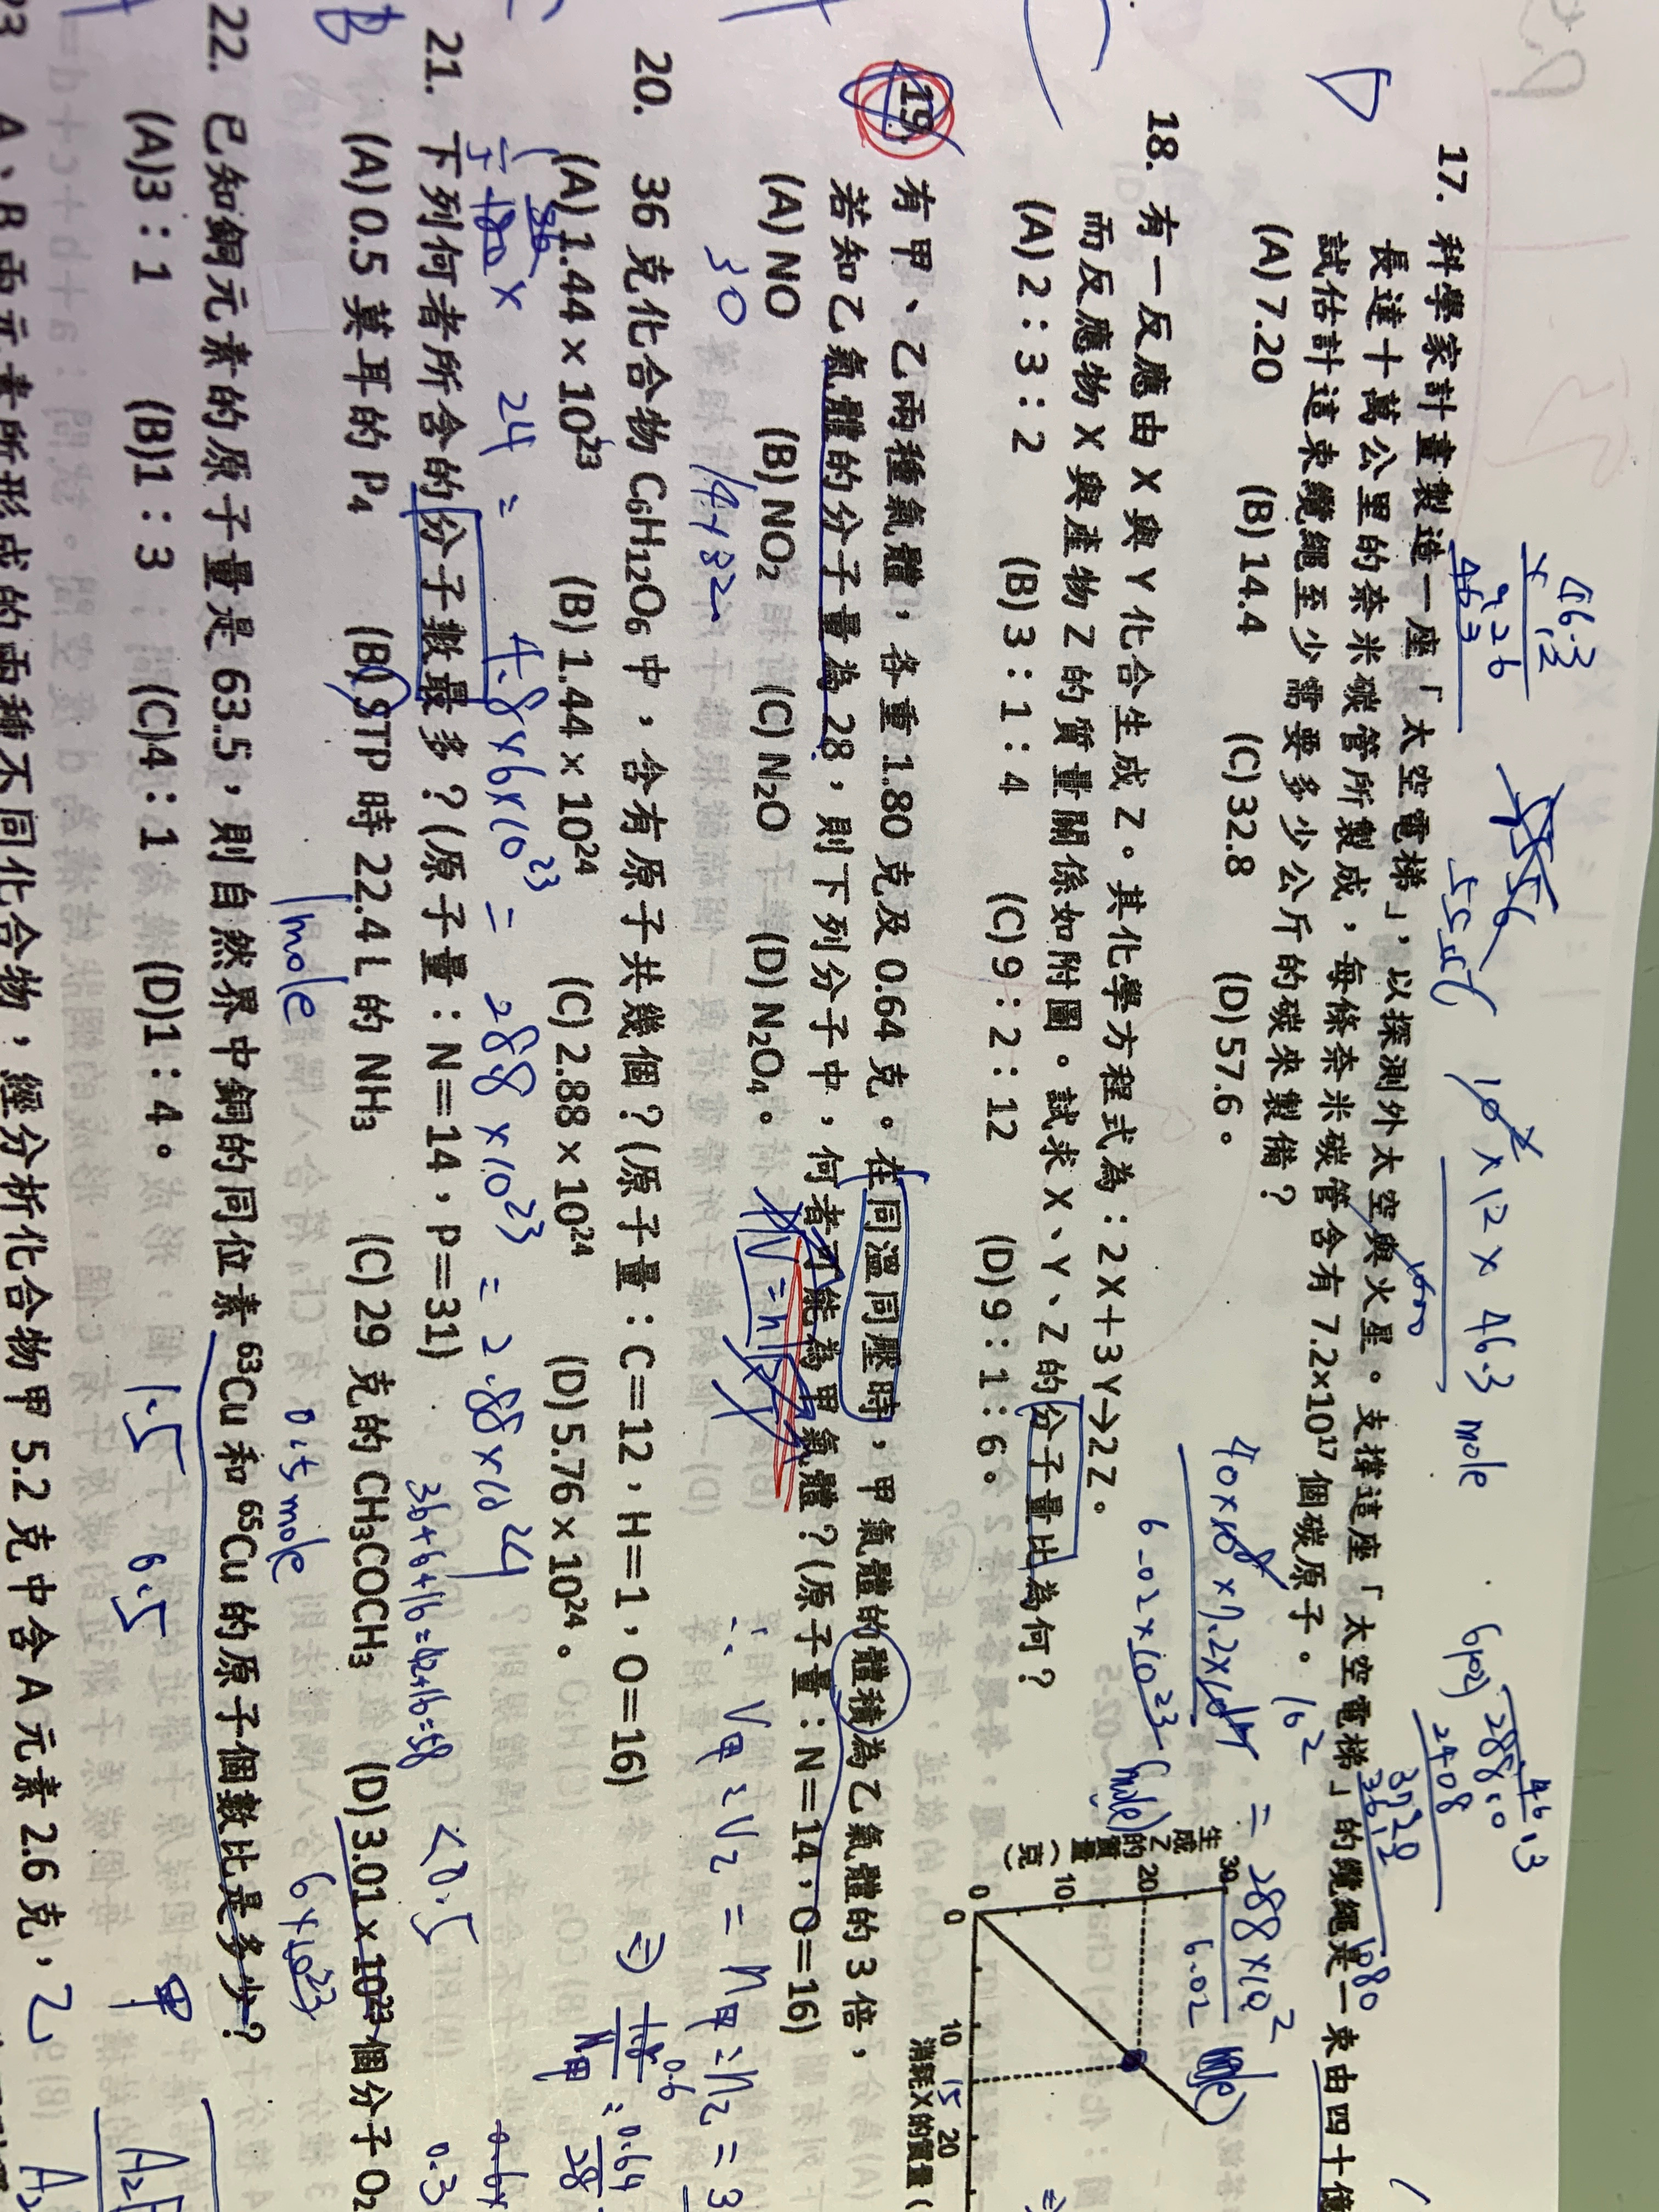 17. 科學家計畫製造一座「太空電梯」，以探測外太空與火星。支撐這座「太空電梯」的纜繩是一束由四十億
長達十萬公里的奈米碳管所製成，每條奈米碳管含有 7.2×10¹⁷ 個碳原子。
試估計這束纜繩至少需要多少公斤的碳來製備？
(A) 7.20 (B) 14.4 (C) 32.8 (D) 57.6。
46.3
× 12
926
463
5556
10² × 12 × 46.3 mole
1000
46.3
602)288.0
2408
3720
3612
1080
40×10⁸ × 7.2×10¹⁷
6.02×10²³ (mole)
= 288×10² (mole)
6.02
18. 有一反應由 X 與 Y 化合生成 Z。其化學方程式為：2X＋3Y→2Z。
而反應物 X 與產物 Z 的質量關係如附圖。試求 X、Y、Z 的分子量比為何？
(A) 2：3：2 (B) 3：1：4 (C) 9：2：12 (D) 9：1：6。
生成Z的質量（克）
30
20
10
0
0 10 15 20
消耗X的質量（
19. 有甲、乙兩種氣體，各重 1.80 克及 0.64 克。在同溫同壓時，甲氣體的體積為乙氣體的 3 倍，
若知乙氣體的分子量為 28，則下列分子中，何者可能為甲氣體？(原子量：N＝14，O＝16)
(A) NO (B) NO₂ (C) N₂O (D) N₂O₄。
30 14+32
∴ V甲：V乙 = n甲：n乙 = 3
⇒ 0.64
28
20. 36 克化合物 C₆H₁₂O₆ 中，含有原子共幾個？(原子量：C＝12，H＝1，O＝16)
(A) 1.44×10²³ (B) 1.44×10²⁴ (C) 2.88×10²⁴ (D) 5.76×10²⁴。
36
180 × 24 = 4.8×6×10²³ = 28.8×10²³ = 2.88×10²⁴
21. 下列何者所含的分子數最多？(原子量：N＝14，P＝31)
36+6+16=42+16=58 <0.5
(A) 0.5 莫耳的 P₄ (B) STP 時 22.4 L 的 NH₃ (C) 29 克的 CH₃COCH₃ (D) 3.01×10²³ 個分子 O₂
1mole 0.5mole 6×10²³
22. 已知銅元素的原子量是 63.5，則自然界中銅的同位素 ⁶³Cu 和 ⁶⁵Cu 的原子個數比是多少？
(A)3：1 (B)1：3 (C)4：1 (D)1：4。
1.5 6.5 甲
23 A、B 兩元素所形成的兩種不同化合物，經分析化合物甲 5.2 克中含 A 元素 2.6 克，乙